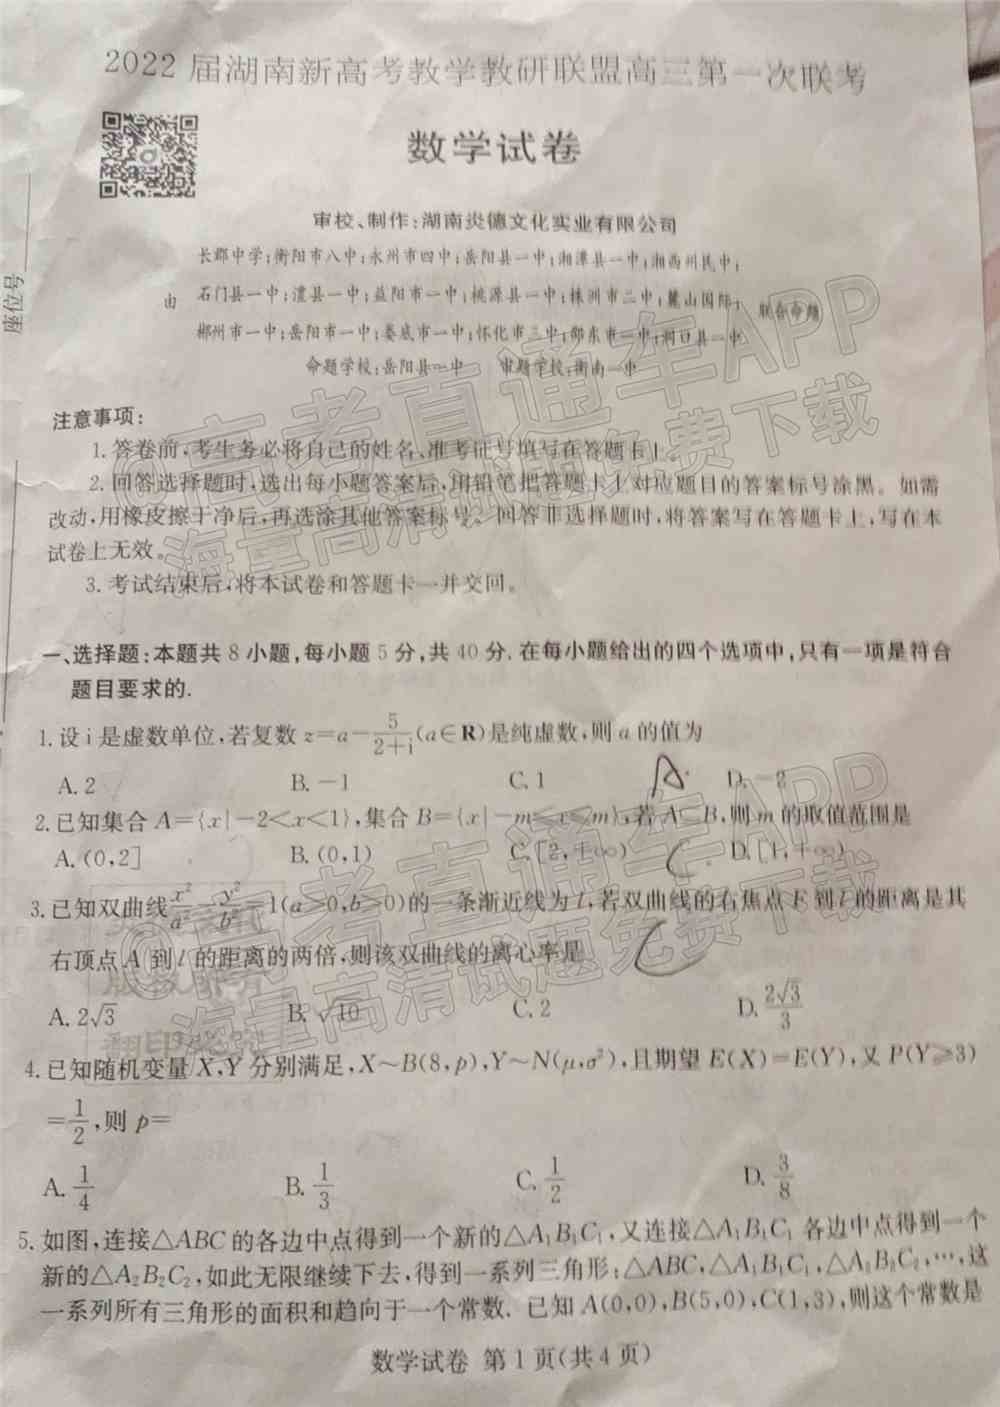 2022届湖南新高考教学教研联盟高三第一次联考
数学试卷
审校、制作:湖南炎德文化实业有限公司
长郡中学;衡阳市八中;永州市四中;岳阳县一中;湘潭县一中;湘西州民中;
由 石门县一中;澧县一中;益阳市一中;桃源县一中;株洲市二中;麓山国际; 联合命题
郴州市一中;岳阳市一中;娄底市一中;怀化市三中;邵东市一中;洞口县一中
命题学校:岳阳县一中 审题学校:衡南一中
座位号
注意事项:
1.答卷前,考生务必将自己的姓名、准考证号填写在答题卡上.
2.回答选择题时,选出每小题答案后,用铅笔把答题卡上对应题目的答案标号涂黑。如需
改动,用橡皮擦干净后,再选涂其他答案标号。回答非选择题时,将答案写在答题卡上,写在本
试卷上无效。
3.考试结束后,将本试卷和答题卡一并交回。
一、选择题:本题共8小题,每小题5分,共40分.在每小题给出的四个选项中,只有一项是符合
题目要求的.
1.设i是虚数单位,若复数z=a-5/(2+i)(a∈R)是纯虚数,则a的值为
A.2 B.-1 C.1 A. D.-2
2.已知集合A={x|-2<x<1},集合B={x|-m≤x≤m},若A⊂B,则m的取值范围是
A.(0,2] B.(0,1) C.[2,+∞) C. D.[1,+∞)
3.已知双曲线x²/a²-y²/b²=1(a>0,b>0)的一条渐近线为l,若双曲线的右焦点F到l的距离是其
右顶点A到l的距离的两倍,则该双曲线的离心率是 C
A.2√3 B.√10 C.2 D.2√3/3
4.已知随机变量X,Y分别满足,X~B(8,p),Y~N(μ,σ²),且期望E(X)=E(Y),又P(Y≥3)
=1/2,则p=
A.1/4 B.1/3 C.1/2 D.3/8
5.如图,连接△ABC的各边中点得到一个新的△A₁B₁C₁,又连接△A₁B₁C₁各边中点得到一个
新的△A₂B₂C₂,如此无限继续下去,得到一系列三角形:△ABC,△A₁B₁C₁,△A₂B₂C₂,…,这
一系列所有三角形的面积和趋向于一个常数.已知A(0,0),B(5,0),C(1,3),则这个常数是
数学试卷 第1页(共4页)
@高考直通车APP
海量高清试题免费下载
@高考直通车APP
海量高清试题免费下载